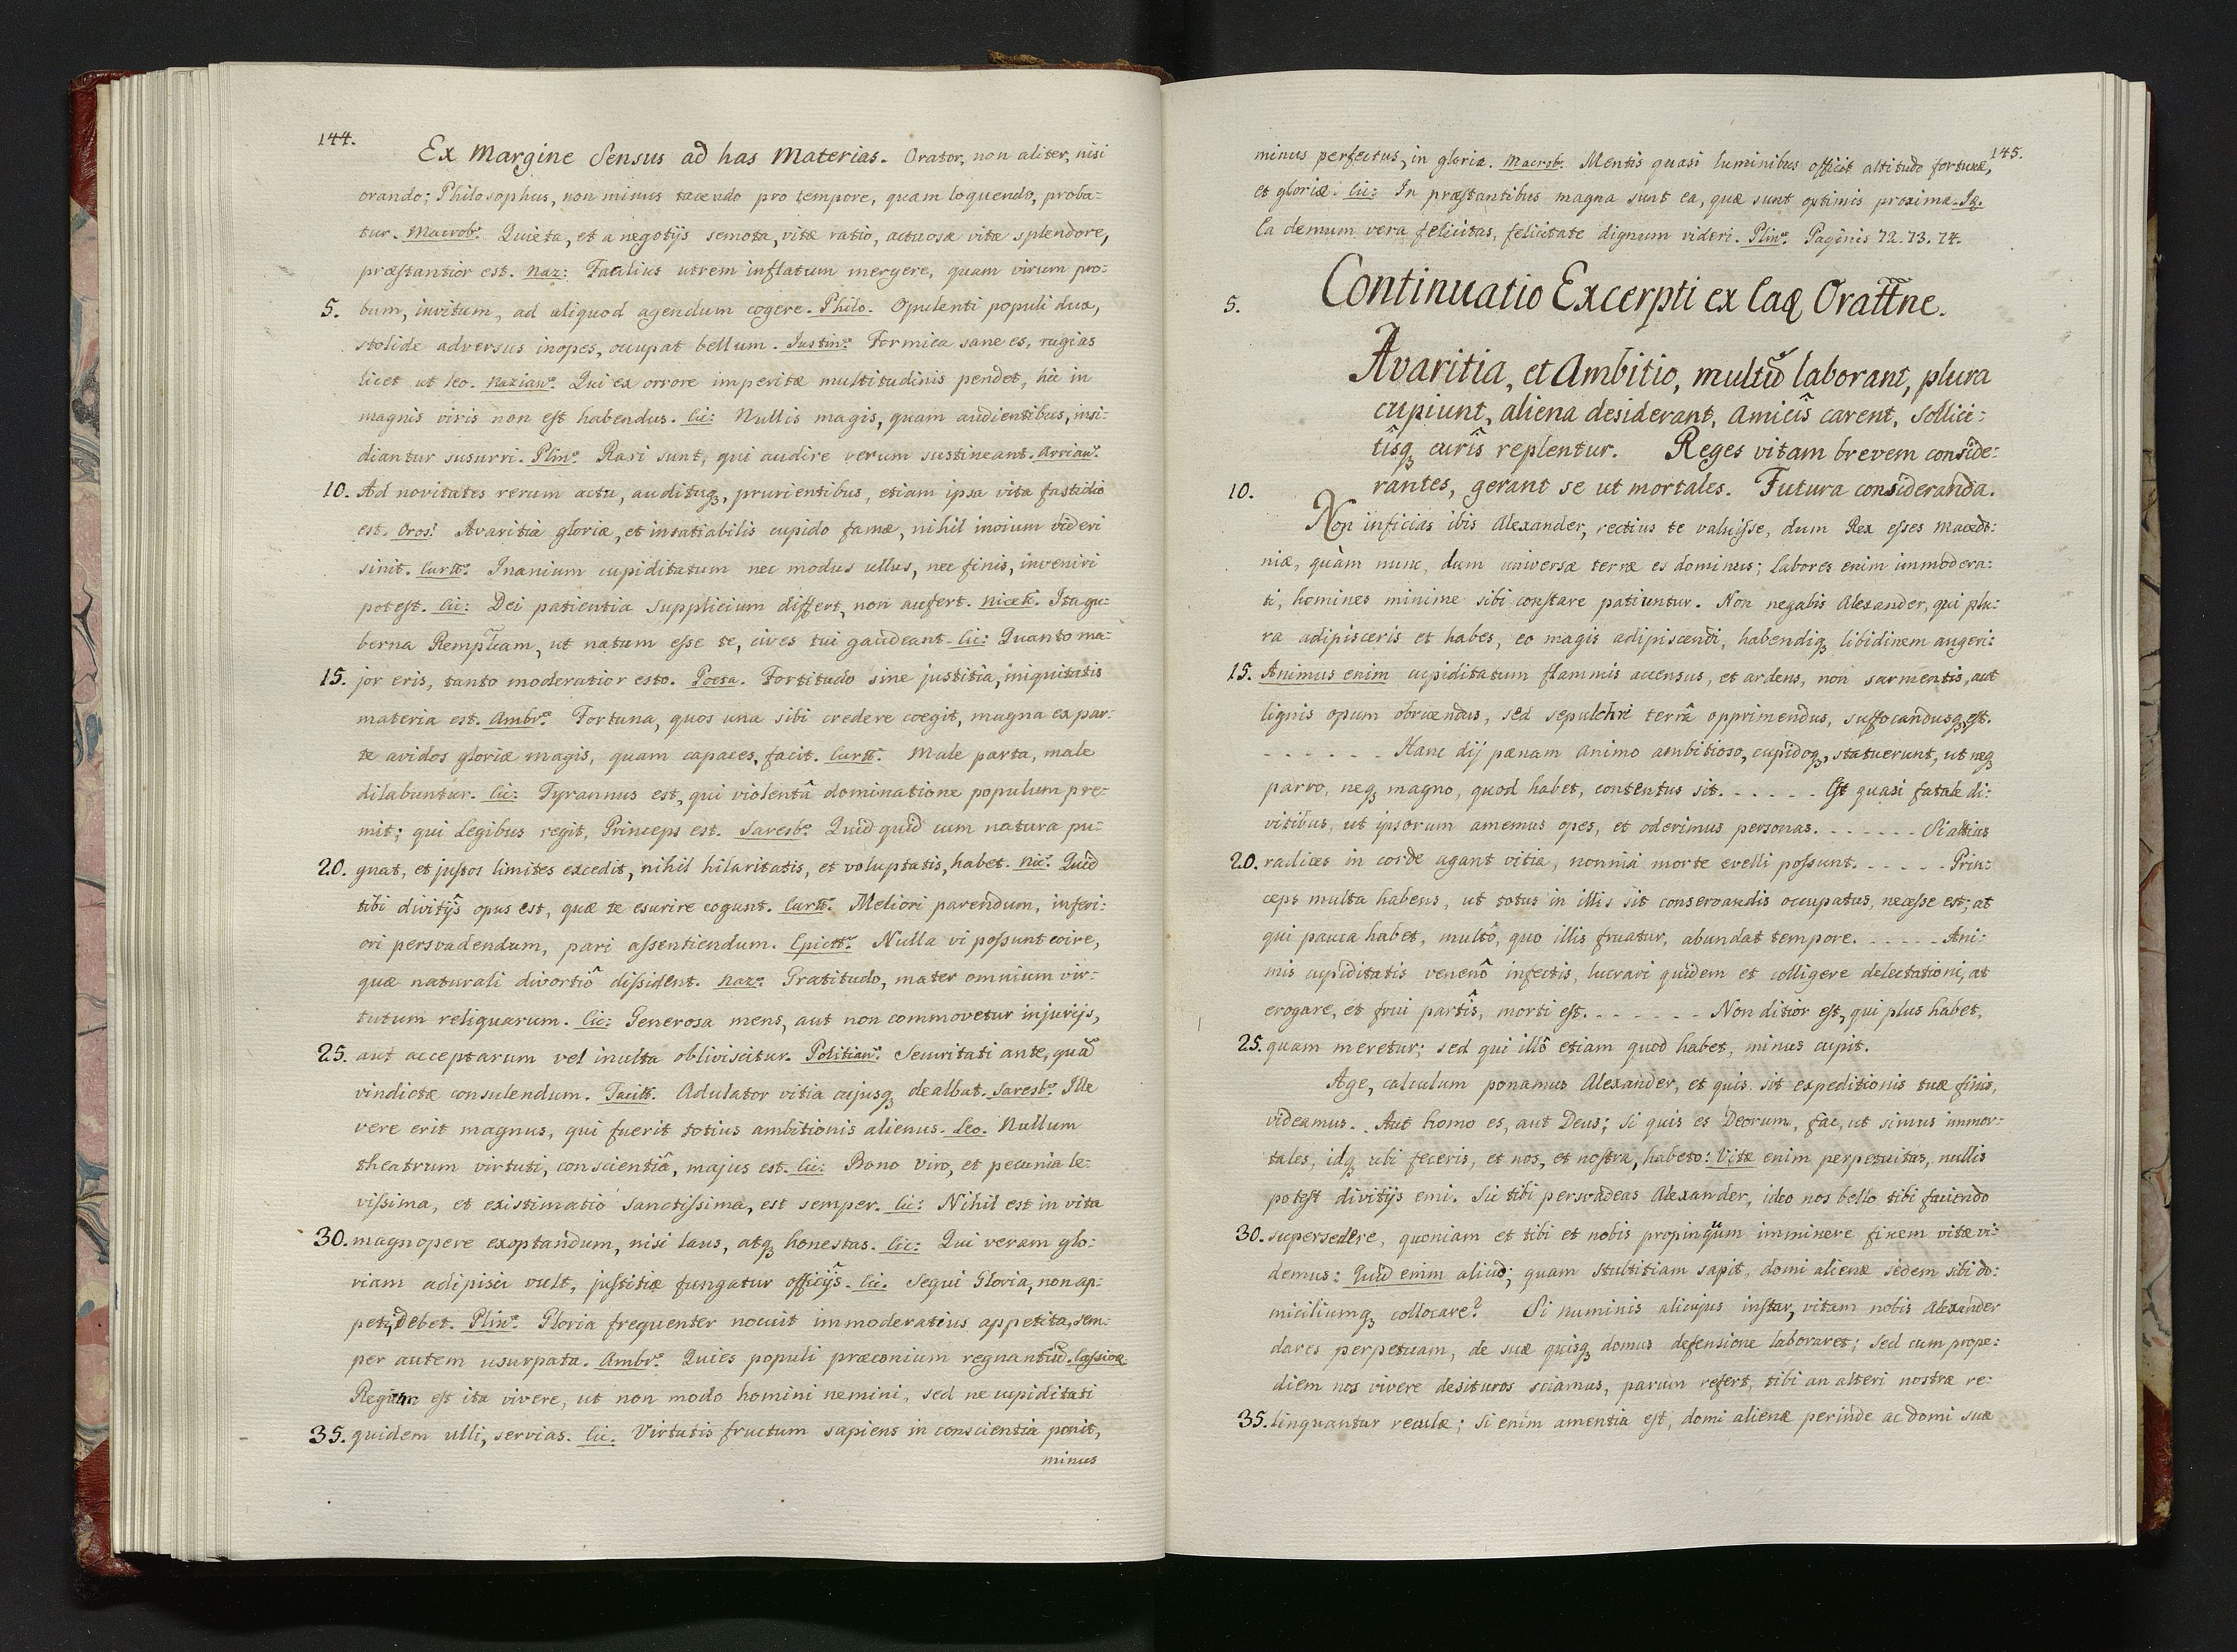 144.
Ex Margine Sensus ad has Materias. Orator, non aliter, nisi
orando; Philosophus, non minus tacendo pro tempore, quam loquendo, proba-
tur. Macrob: Quieta, et a negotijs semota, vitæ ratio, actuosæ vitæ splendore,
præstantior est. Naz: Facilius utrem inflatum mergere, quam virum pro:
5. bum, invitum, ad aliquod agendum cogere. Philo. Opulenti populi dux,
stolide adversus inopes, occupat bellum. Justin: Formica sane es, rugias
licet ut leo. Nazian: Qui ex orrore imperitæ multitudinis pendet, hic in
magnis viris non est habendus. Cic: Nullis magis, quam audientibus, insi:
diantur susurri. Plin: Rari sunt, qui audire verum sustineant. Arrian:
10. Ad novitates rerum actu, audituq, prurientibus, etiam ipsa vita fastidio
est. Oros: Avaritia gloriæ, et insatiabilis cupido famæ, nihil invium videri
sinit. Curtt: Inanium cupiditatum nec modus ullus, nec finis, inveniri
potest. Cic: Dei patientia supplicium differt, non aufert. Nicet: Ita gu-
berna Remplcam, ut natum esse te, cives tui gaudeant. Cic: Quanto ma-
15. jor eris, tanto moderatior esto. Poeta. Fortitudo sine justitiâ, iniquitatis
materia est. Ambr: Fortuna, quos una sibi credere coegit, magna ex par-
te avidos gloriæ magis, quam capaces, facit. Curtt: Male parta, male
dilabuntur. Cic: Tyrannus est, qui violentâ dominatione populum pre-
mit; qui Legibus regit, Princeps est. Saresb: Quid quid cum natura pu-
20. gnat, et justos limites excedit, nihil hilaritatis, et voluptatis, habet. Nic: Quid
tibi divitijs opus est, quæ te esurire cogunt. Curtt: Meliori parendum, inferi:
ori persvadendum, pari assentiendum. Epictt: Nulla vi possunt coire,
quæ naturali divortiô dissident. Naz: Gratitudo, mater omnium vir-
tutum reliquarum. Cic: Generosa mens, aut non commovetur injurijs,
25. aut acceptarum vel inulta obliviscitur. Politian: Securitati ante, quã
vindictæ consulendum. Tacitt. Adulator vitia cujusq dealbat. Saresb: Ille
vere erit magnus, qui fuerit totius ambitionis alienus. Leo. Nullum
theatrum virtuti, conscientiâ, majus est. Cic: Bono Viro, et pecunia le-
vissima, et existimatio sanctissima, est semper. Cic: Nihil est in vita
30. magnopere exoptandum, nisi laus, atq honestas. Cic: Qui veram glo:
riam adipisci vult, justitiæ fungatur officijs. Cic. Sequi Gloria, non ap-
peti, debet. Plin: Gloria frequenter nocuit immoderatius appetita, sem-
per autem usurpata. Ambr: Quies populi præconium regnantiũ. Cassiod.
Regium est ita vivere, ut non modo homini nemini, sed ne cupiditati
35. quidem ulli, servias. Cic. Virtutis fructum sapiens in conscientia ponit,
minus
145.
minus perfectus, in gloria. Macrob. Mentis quasi luminibus officit altitudo fortunæ,
et gloriæ. Cic: In præstantibus magna sunt ea, quæ sunt optimis proxima.
Ea demum vera felicitas, felicitate dignum videri. Plin: Paginis 72. 73. 74.
5. Continuatio Excerpti ex Eaq Orattne.
Avaritia, et Ambitio, multũ laborant, plura
cupiunt, aliena desiderant, Amicîs carent, Sollici:
tîsq curîs replentur. Reges vitam brevem conside:
10. rantes, gerant se ut mortales. Futura consideranda.
Non inficias ibis Alexander, rectius te valuisse, dum Rex esses Macedo:
niæ, quàm nunc, dum universæ terræ es dominus; labores enim immodera:
ti, homines minime sibi constare patiuntur. Non negabis Alexander, qui plu:
ra adipisceris et habes, eo magis adipiscendi, habendiq libidinem augeri:
15. Animus enim cupiditatum flammis accensus, et ardens, non sarmentis, aut
lignis opum obruendus, sed sepulchri terrâ opprimendus, suffocandusq, est.
. . . . . . Hanc dij pænam animo ambitioso, cupidoq, statuerunt, ut neq
parvo, neq magno, quod habet, contentus sit. . . . . . Est quasi fatale di:
vitibus, ut ipsorum amemus opes, et oderimus personas. . . . . . . Si altius
20. radices in corde agant vitia, nonnisi morte evelli possunt. . . . . . Prin:
ceps multa habens, ut totus in illis sit conservandis occupatus, necesse est; at
qui pauca habet, multô, quo illis fruatur, abundat tempore. . . . . . Ani:
mis cupiditatis venenô infectis, lucrari quidem et colligere delectationi, at
erogare, et frui partîs, morti est. . . . . . . Non ditior est, qui plus habet,
25. quam meretur; sed qui illô etiam quod habet, minus cupit.
Age, calculum ponamus Alexander, et quis sit expeditionis tuæ finis,
videamus. Aut homo es, aut Deus; si quis es Deorum, fac, ut simus immor-
tales, idq ubi feceris, et nos, et nostra, habeto: Vitæ enim perpetuitas, nullis
potest divitijs emi. Sic tibi persvadeas Alexander, ideo nos bello tibi faciendo
30. supersedere, quoniam et tibi et nobis propinquum imminere finem vitæ vi-
demus: Quid enim aliud; quam stultitiam sapit, domi alienæ sedem sibi do:
miciliumq collocare? Si numinis alicujus instar, vitam nobis Alexander
dares perpetuam, de suæ quisq domus defensione laboraret; sed cum prope:
diem nos vivere desituros sciamus, parum refert, tibi an alteri nostræ re:
35. linquantur reculæ; si enim amentia est, domi alienæ perinde ac domi suæ